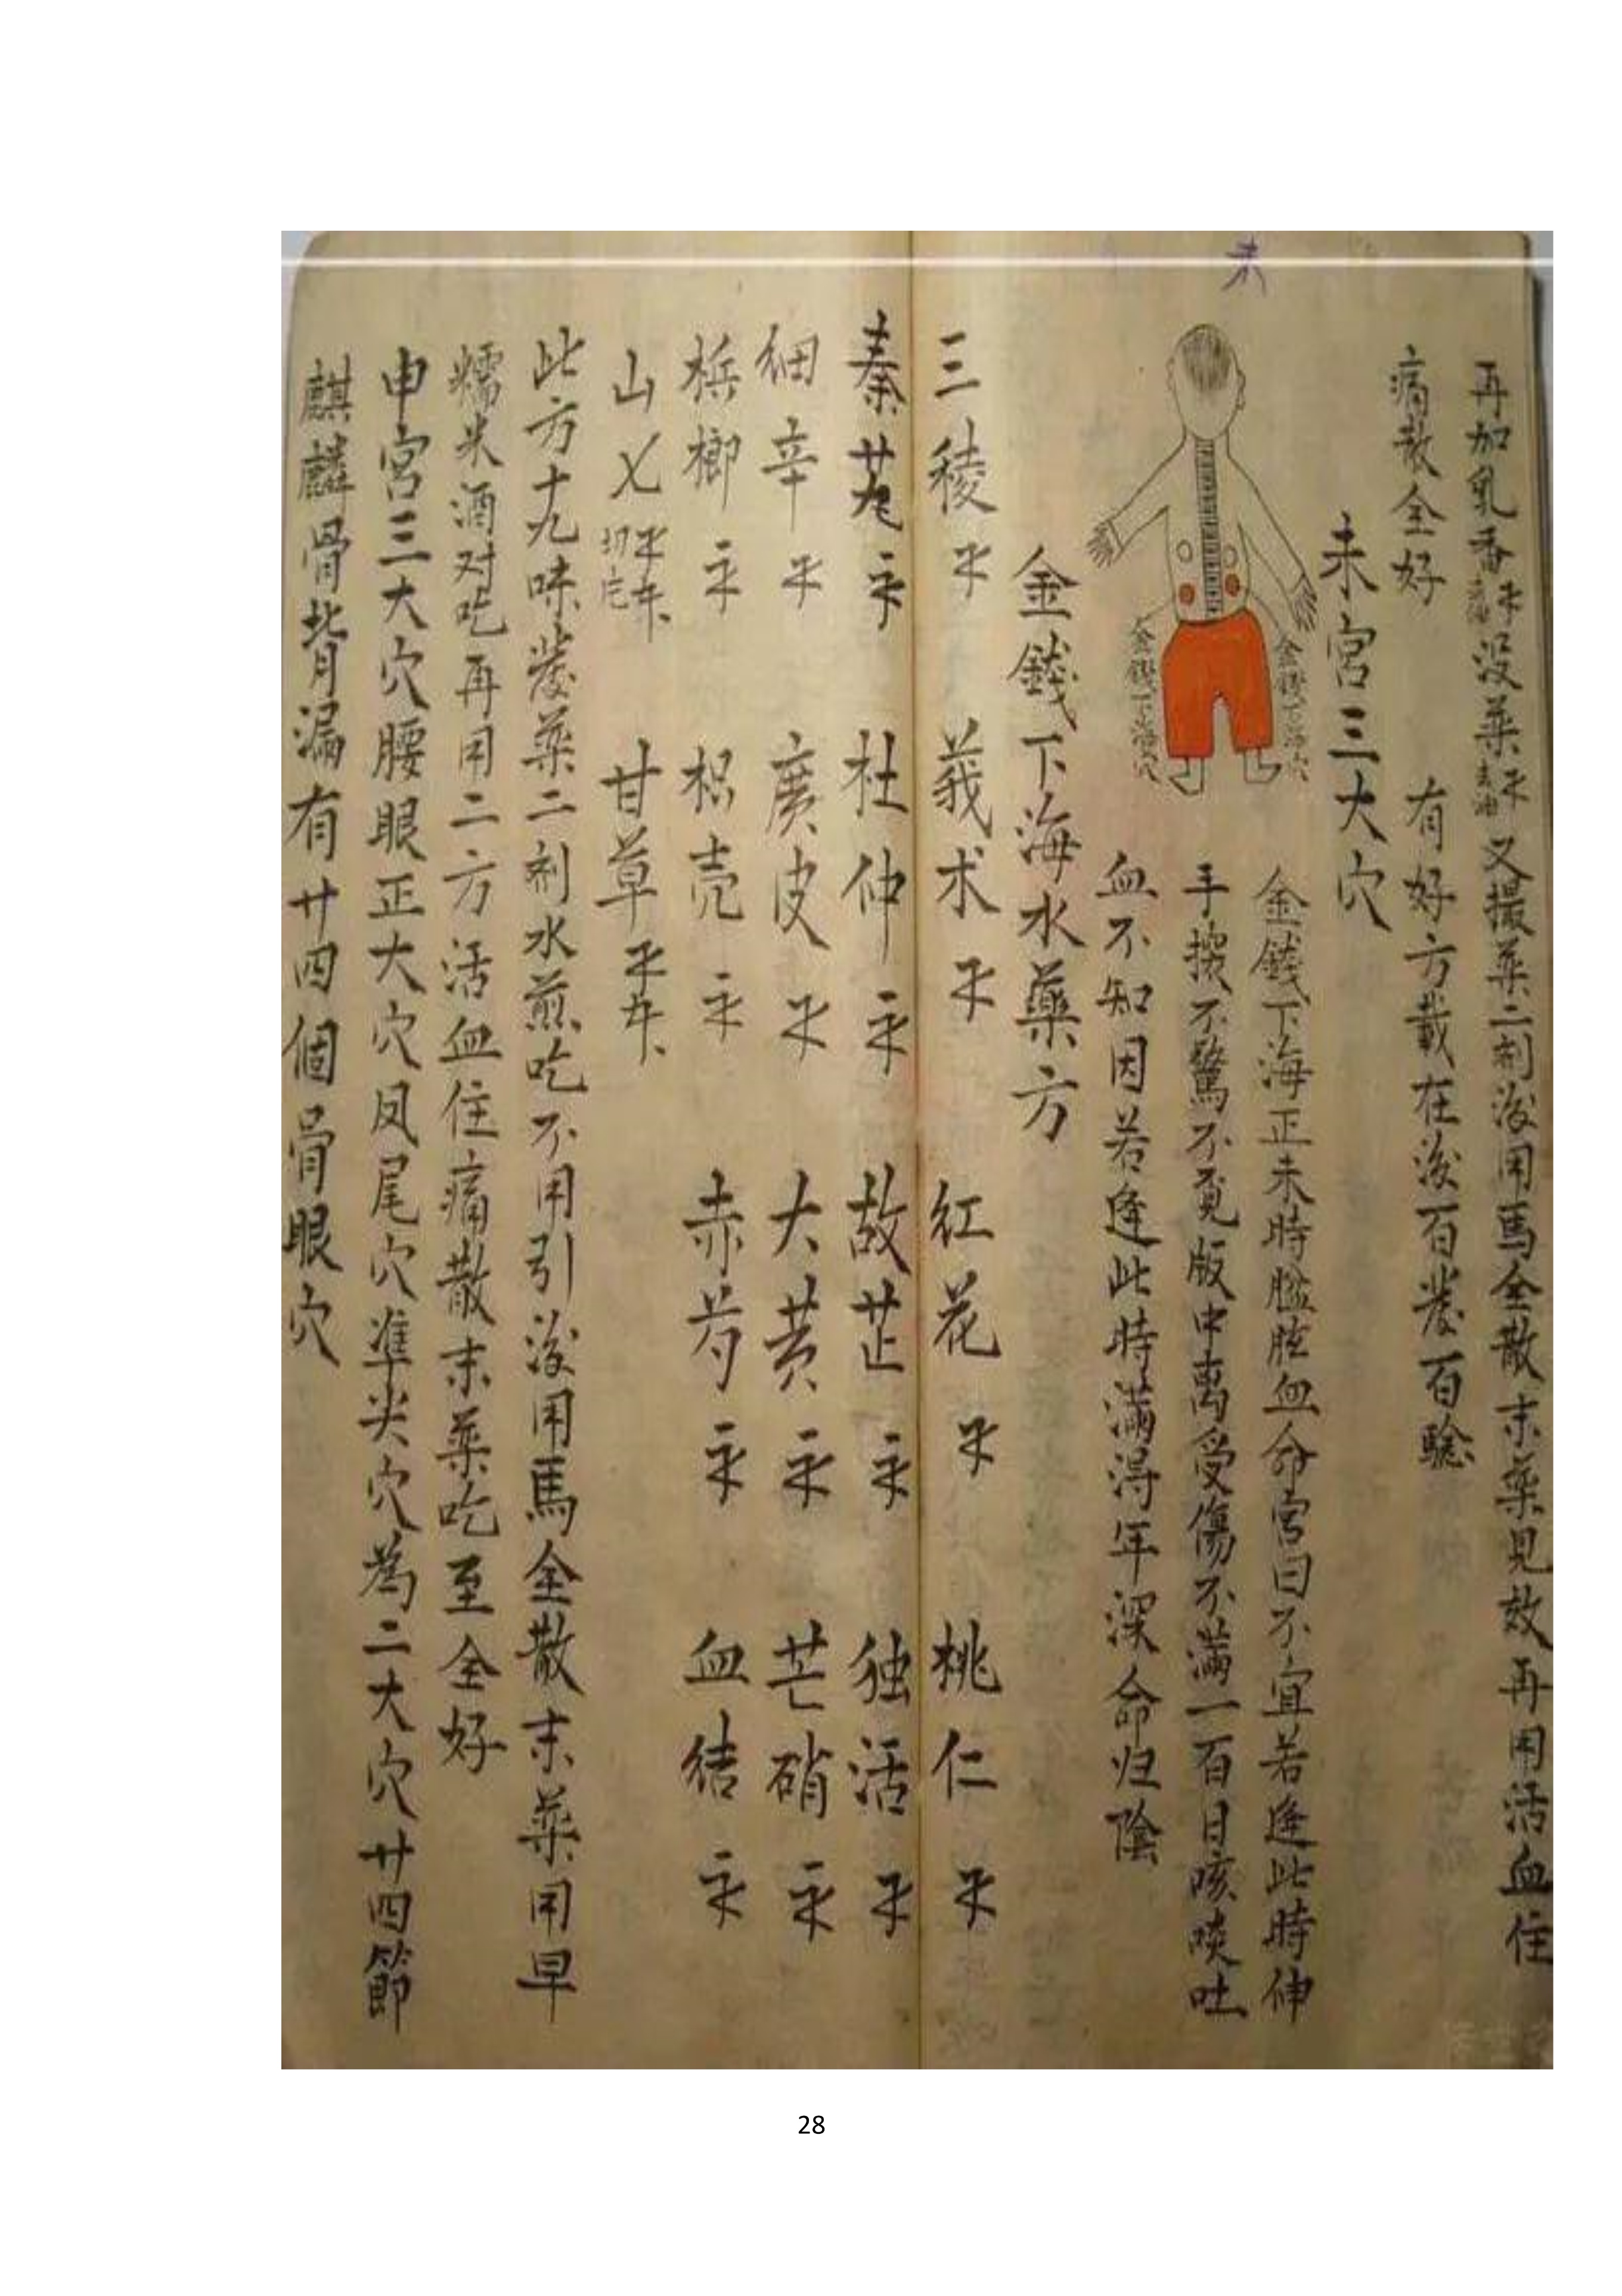 未
再加乳香 去油 没藥 去油 又撮藥二剤後用馬全散末藥見效再用活血住
痛散全好 有好方載在後百發百驗
未宮三大穴
金錢下海穴
金錢下海穴
金錢下海正未時 血命宮曰不宜若逢此時伸
手 不驚不覓版中离受傷不滿一百日咳啖吐
血不知因若逢此時滿得年深命归陰
金錢下海水藥方
三稜 莪求 紅花 桃仁
秦艽 杜仲 故芷 独活
细辛 廣皮 大黄 芒硝
梹榔 枳壳 赤芍 血结
山乂 切 甘草
此方十九味發藥二剤水煎吃不用引後用馬全散末藥用早
糯米酒对吃再用二方活血住痛散末藥吃至全好
申宮三大穴腰眼正大穴凤尾穴準尖穴為二大穴廿四節
麒麟骨背漏有廿四個骨眼穴
28